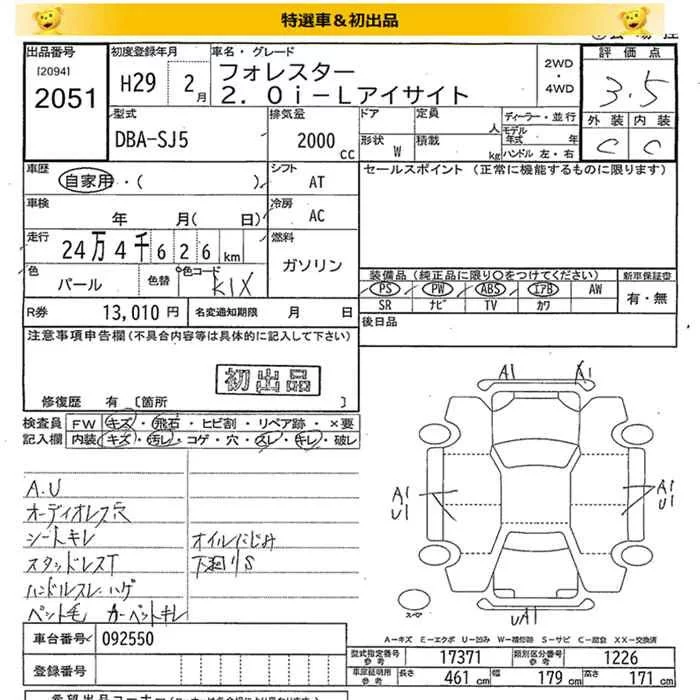 特選車＆初出品
出品番号
[2094]
2051
初度登録年月
H29 2月
車名・グレード
フォレスター
2.0i-Lアイサイト
2WD
・
4WD
評価点
3.5
外装 内装
C C
型式
DBA-SJ5
排気量
2000 cc
ドア
定員
人
形状
W
積載
kg
ディーラー・並行
モデル年式 年
ハンドル 左・右
車歴
自家用・( )
シフト
AT
セールスポイント (正常に機能するものに限ります)
車検
年 月( 日)
冷房
AC
走行
24万4千626km
燃料
ガソリン
色
パール
色替
色コード
K1X
装備品(純正品に限り○をつけてください)
PS PW ABS エアB AW
SR ナビ TV カワ
新車保証書
有・無
R券
13,010円
名変通知期限 月 日
後日品
注意事項申告欄(不具合内容等は具体的に記入して下さい)
初出品
修復歴 有 [箇所 ]
検査員
記入欄
FW キズ・飛石・ヒビ割・リペア跡・×要
内装 キズ・汚レ・コゲ・穴・スレ・キレ・破レ
A.U
オーディオレス穴
シートキレ
スタッドレスT
ハンドルスレ・ハゲ
ペット毛 カーペットキレ
オイルにじみ
下廻りS
A1 A1
A1
U1
A1
U1
スペア
UA1
A－キズ E－エクボ U－凹み W－補修跡 S－サビ C－腐食 XX－交換済
車台番号
092550
登録番号
型式指定番号
参考
17371
類別区分番号
参考
1226
車庫証明用
参考
長さ
461 cm
幅
179 cm
高さ
171 cm